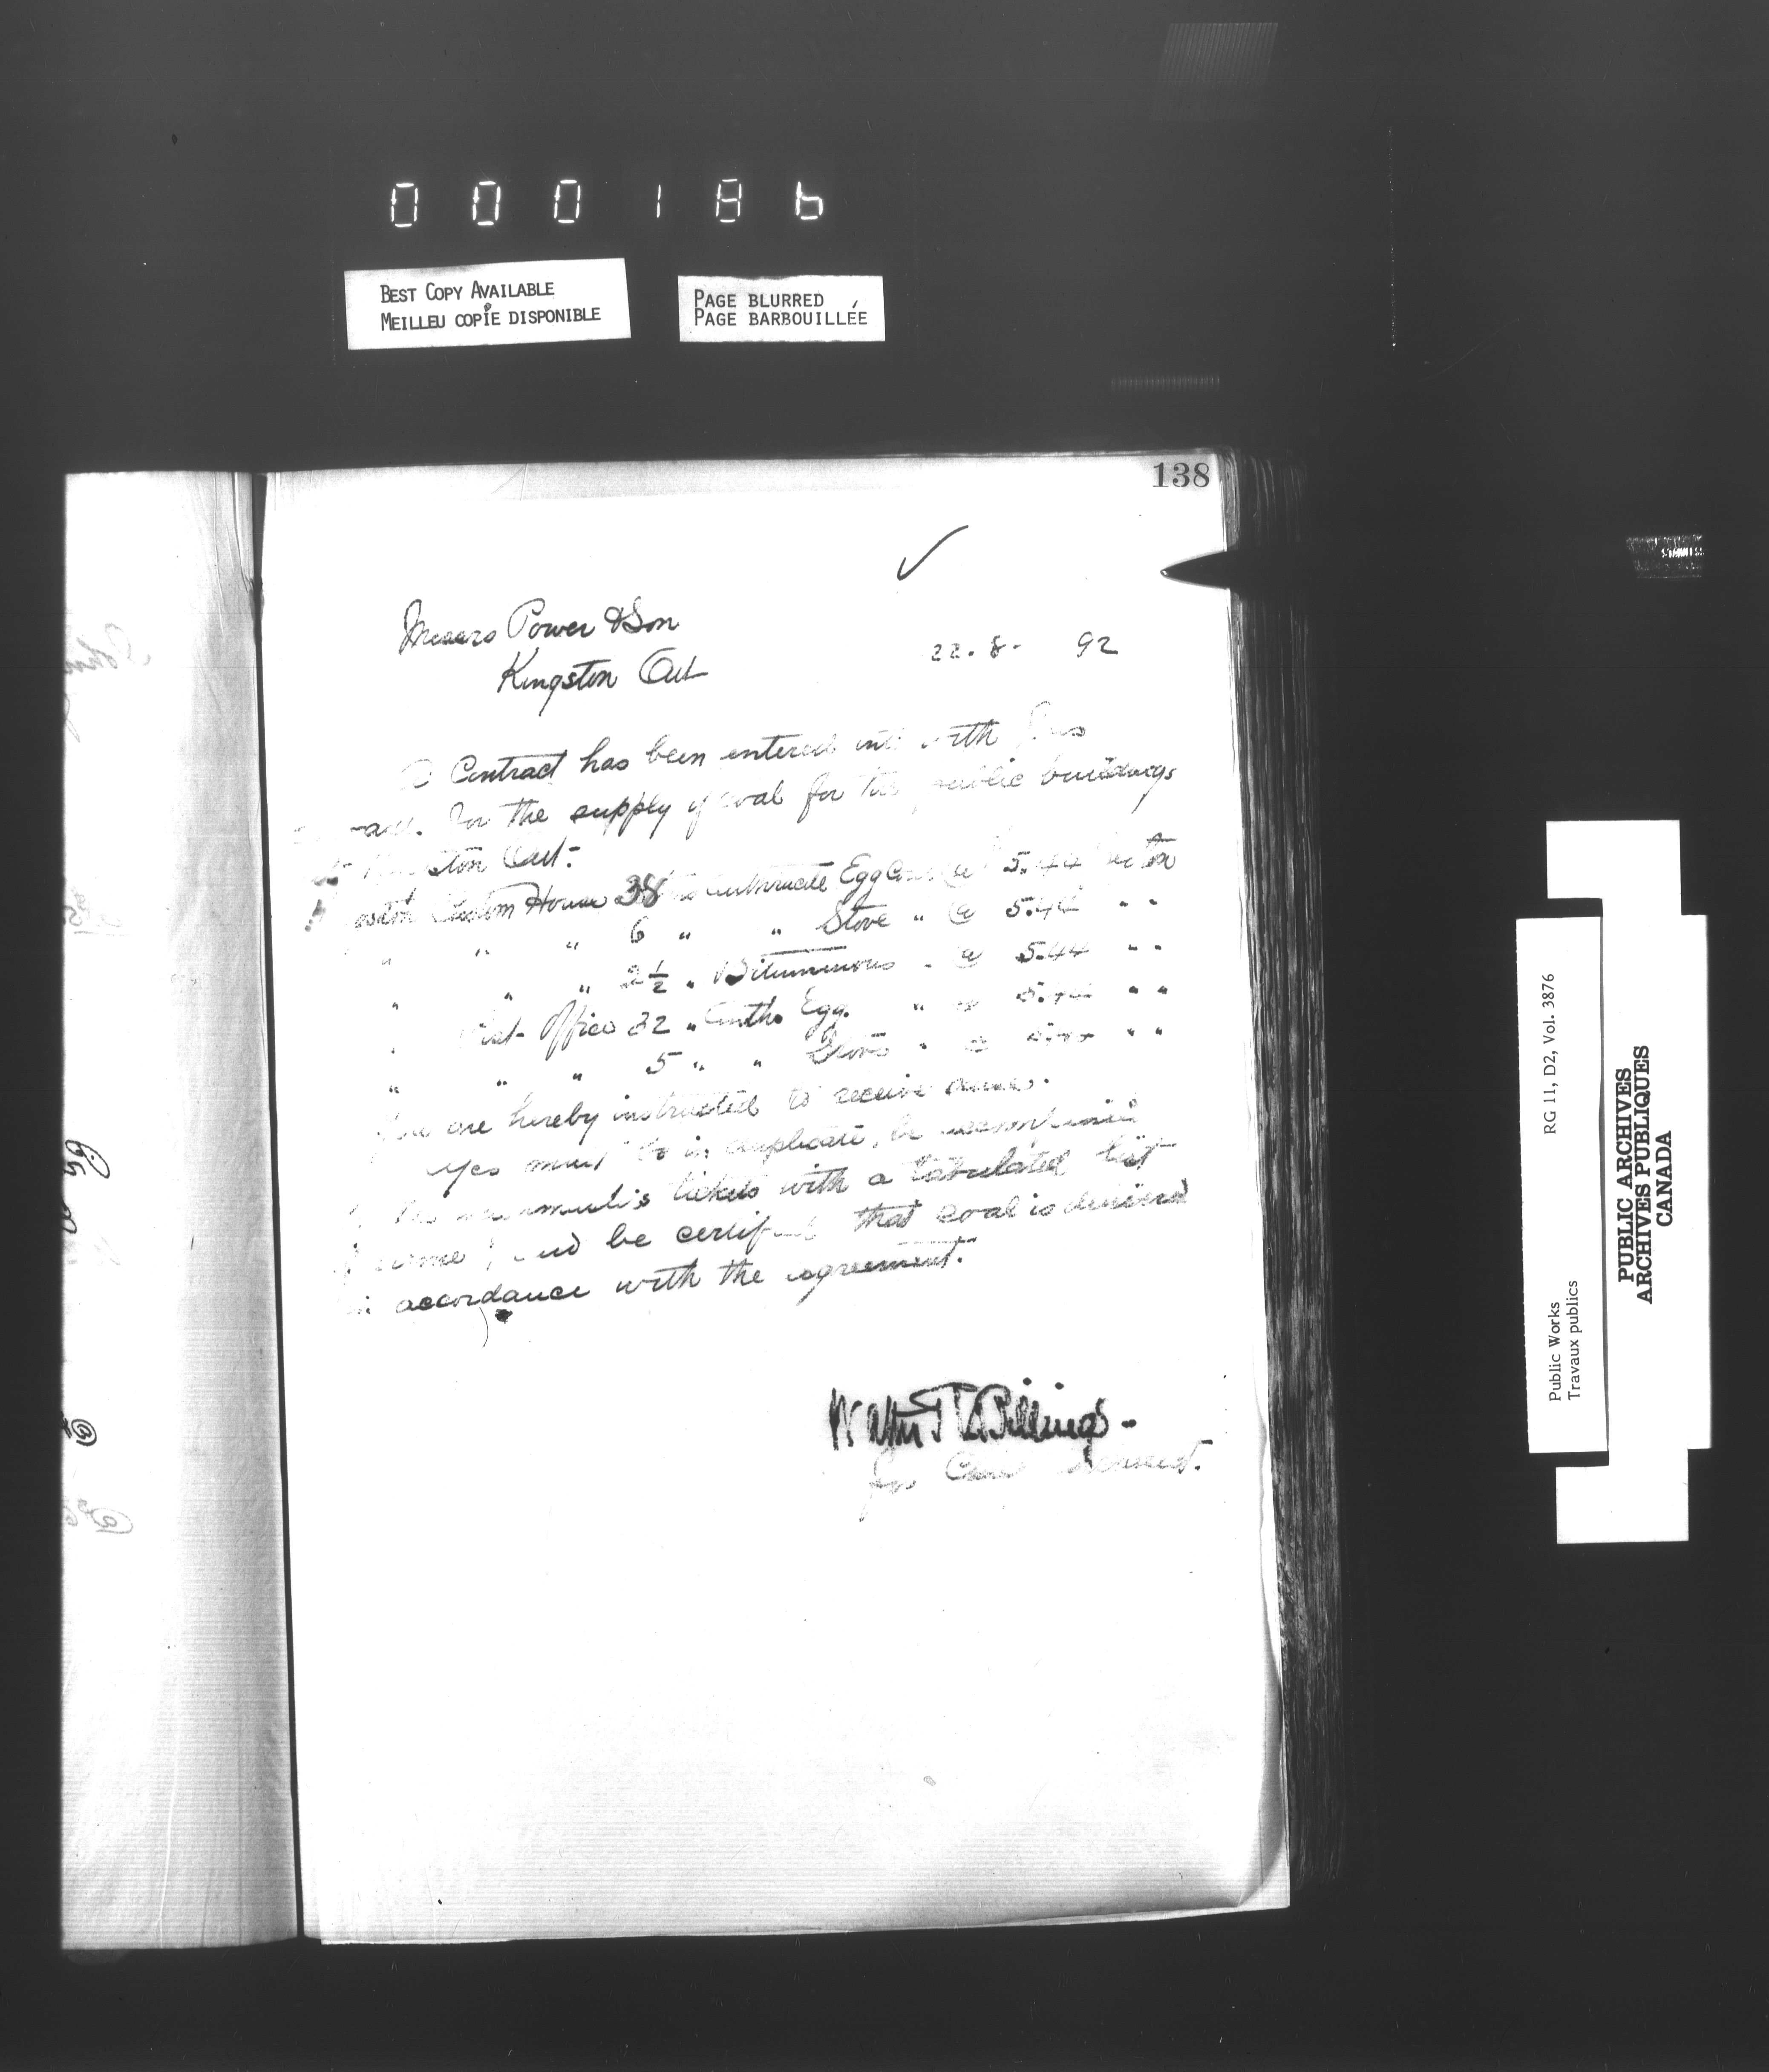 000186
BEST COPY AVAILABLE
MEILLEU COPIE DISPONIBLE
PAGE BLURRED
PAGE BARBOUILLÉE
138
Messrs Power & Son
22. 8. 92
Kingston Ont
A Contract has been entered into with
for the supply of coal for the public buildings
at Kingston Ont:
Custom House 38 Anthracite Egg Coal @ 5.44 ton
" " " 6 " " Stove " @ 5.44 " "
" " " 2½ " Bituminous " @ 5.44 " "
" Post Office 32 " Anth. Egg. " @ 5.44 " "
" " " 5 " " Stove " @ " "
You are hereby instructed to receive same.
must be in duplicate, be accompanied
tickets with a tabulated list
of same, and be certified that coal is delivered
in accordance with the agreement.
Billings
for Chief
Public Works RG 11, D2, Vol. 3876
Travaux publics
PUBLIC ARCHIVES
ARCHIVES PUBLIQUES
CANADA